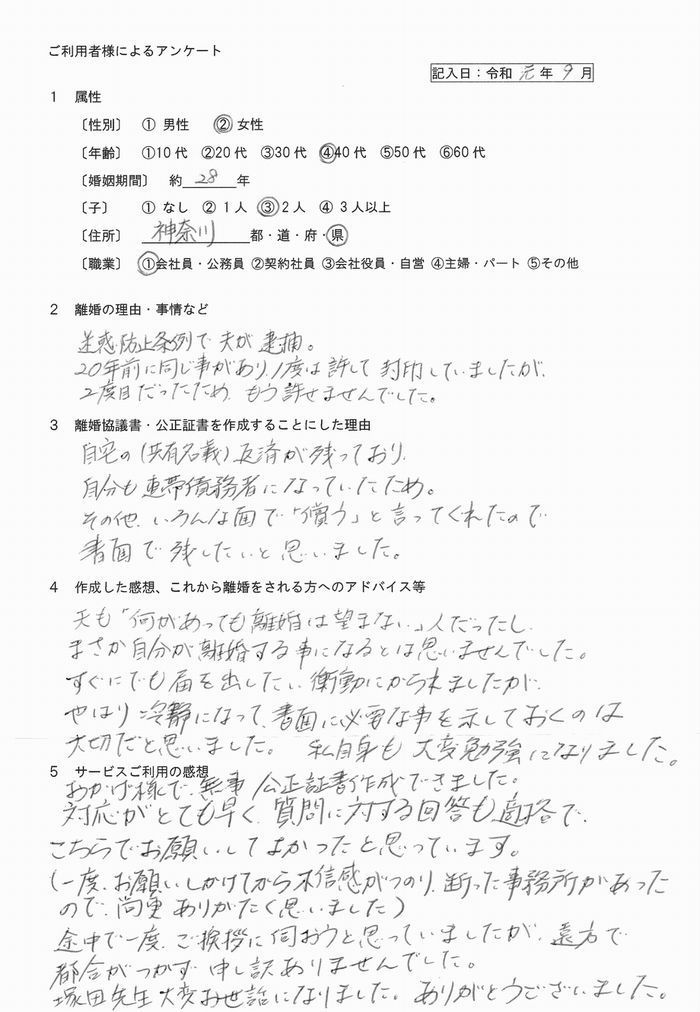 ご利用者様によるアンケート
記入日：令和 元 年 9 月
1 属性
〔性別〕 ① 男性 ② 女性
〔年齢〕 ①10代 ②20代 ③30代 ④40代 ⑤50代 ⑥60代
〔婚姻期間〕 約 28 年
〔子〕 ① なし ② 1人 ③ 2人 ④ 3人以上
〔住所〕 神奈川 都・道・府・県
〔職業〕 ①会社員・公務員 ②契約社員 ③会社役員・自営 ④主婦・パート ⑤その他
2 離婚の理由・事情など
迷惑防止条例で夫が逮捕。
20年前に同じ事があり、1度は許して封印していましたが、
2度目だったため、もう許せませんでした。
3 離婚協議書・公正証書を作成することにした理由
自宅の(共有名義)返済が残っており、
自分も連帯債務者になっていたため。
その他、いろんな面で「償う」と言ってくれたので
書面で残したいと思いました。
4 作成した感想、これから離婚をされる方へのアドバイス等
夫も「何があっても離婚は望まない」人だったし、
まさか自分が離婚する事になるとは思いませんでした。
すぐにでも届を出したい衝動にかられましたが、
やはり冷静になって、書面に必要な事を示しておくのは
大切だと思いました。 私自身も大変勉強になりました。
5 サービスご利用の感想
おかげ様で、無事 公正証書作成できました。
対応がとても早く、質問に対する回答も適格で、
こちらでお願いしてよかったと思っています。
(一度、お願いしかけてから不信感がつのり、断った事務所があった
ので、尚更 ありがたく思いました)
途中で一度、ご挨拶に伺おうと思っていましたが、遠方で
都合がつかず 申し訳ありませんでした。
塚田先生 大変お世話になりました。ありがとうございました。